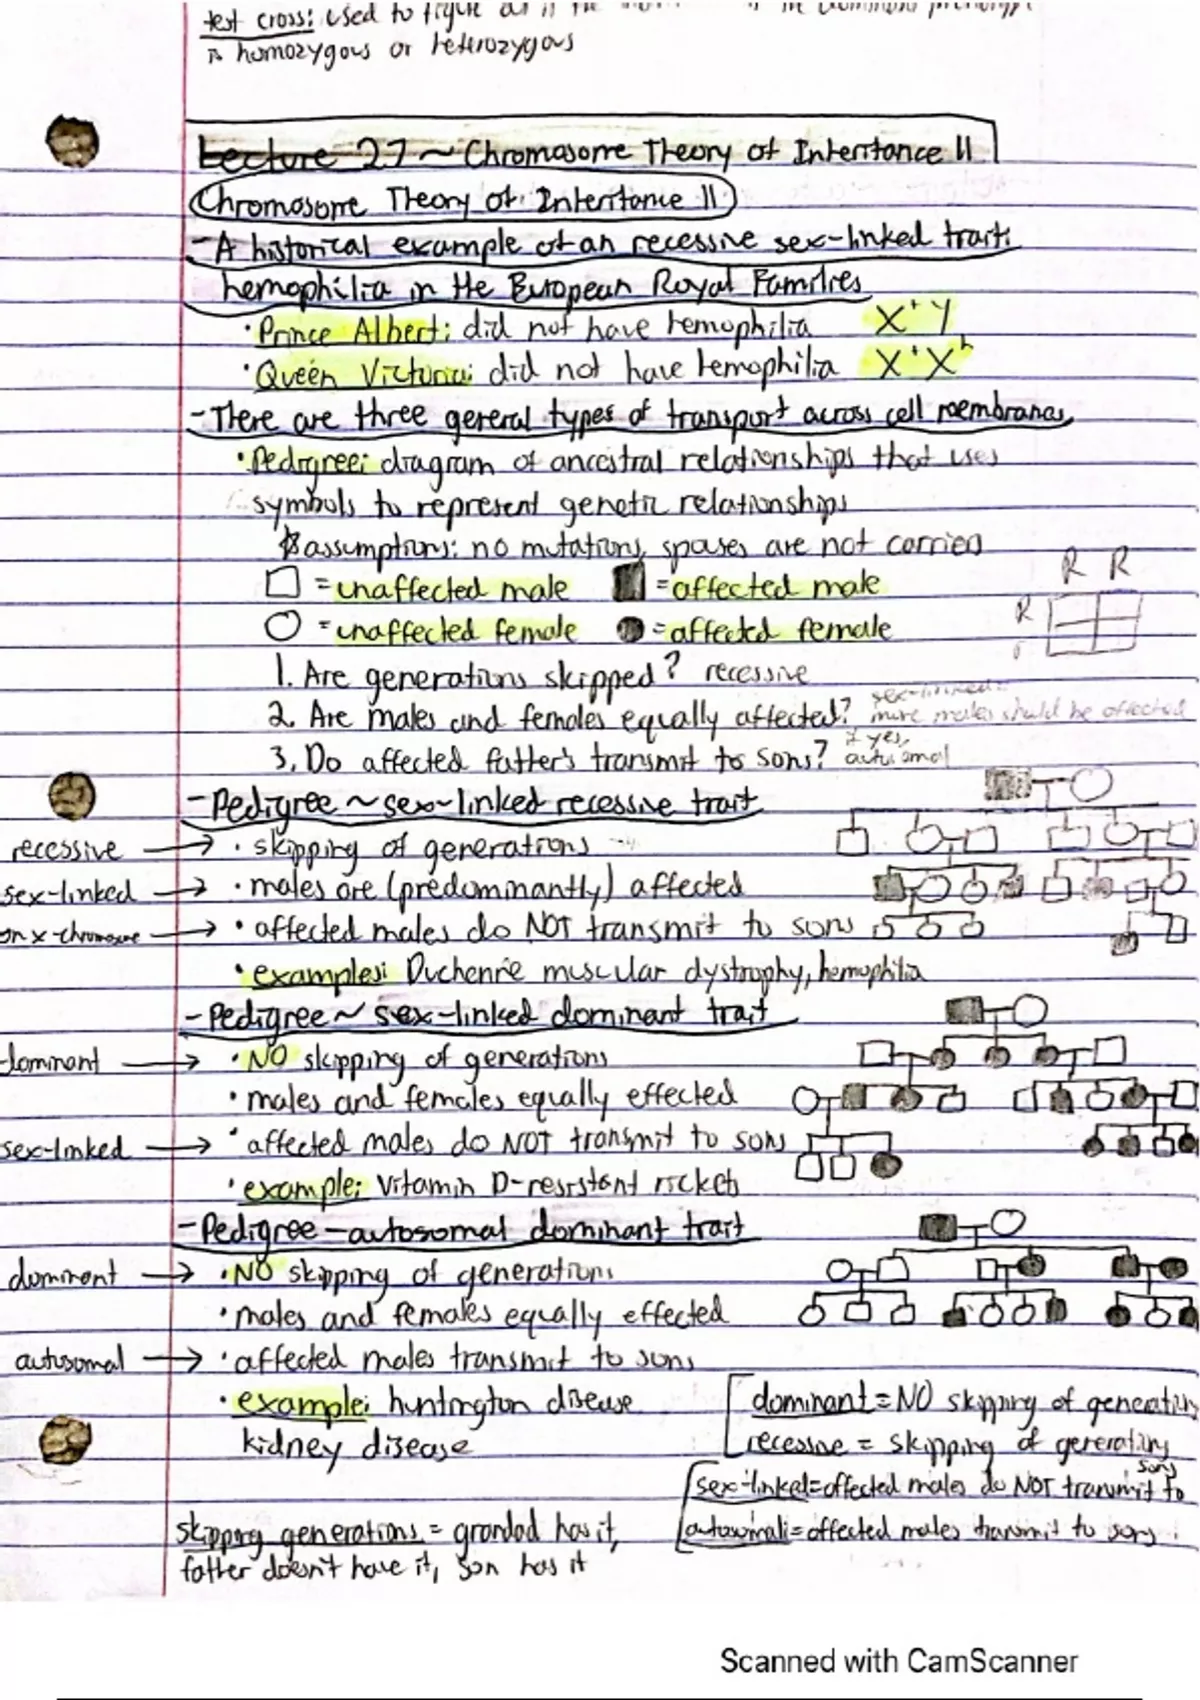 test cross: used to figure
is homozygous or heterozygous
Lecture 27 ~ Chromosome Theory of Inheritance II
Chromosome Theory of Inheritance II
- A historical example of an recessive sex-linked trait:
hemophilia in the European Royal Families
• Prince Albert: did not have hemophilia X⁺Y
• Queen Victoria: did not have hemophilia X⁺Xʰ
- There are three general types of transport across cell membranes
• Pedigree: diagram of ancestral relationships that uses
symbols to represent genetic relationships
assumptions: no mutations, spouses are not carriers
= unaffected male = affected male
R R
= unaffected female = affected female
R
r
1. Are generations skipped? recessive
2. Are males and females equally affected? sex-linked: more males should be affected
3. Do affected father's transmit to sons? if yes, autosomal
- Pedigree ~ sex-linked recessive trait
recessive → • skipping of generations
sex-linked → • males are (predominantly) affected
on x-chromosome → • affected males do NOT transmit to sons
• examples: Duchenne muscular dystrophy, hemophilia
- Pedigree ~ sex-linked dominant trait
dominant → • NO skipping of generations
• males and females equally effected
sex-linked → • affected males do NOT transmit to sons
• example: Vitamin D-resistant rickets
- Pedigree - autosomal dominant trait
dominant → • NO skipping of generations
• males and females equally effected
autosomal → • affected males transmit to sons
• example: huntington disease
kidney disease
dominant = NO skipping of generations
recessive = skipping of generations
sex-linked = affected males do NOT transmit to sons
autosomal = affected males transmit to sons
skipping generations = grandad has it,
father doesn't have it, son has it
Scanned with CamScanner